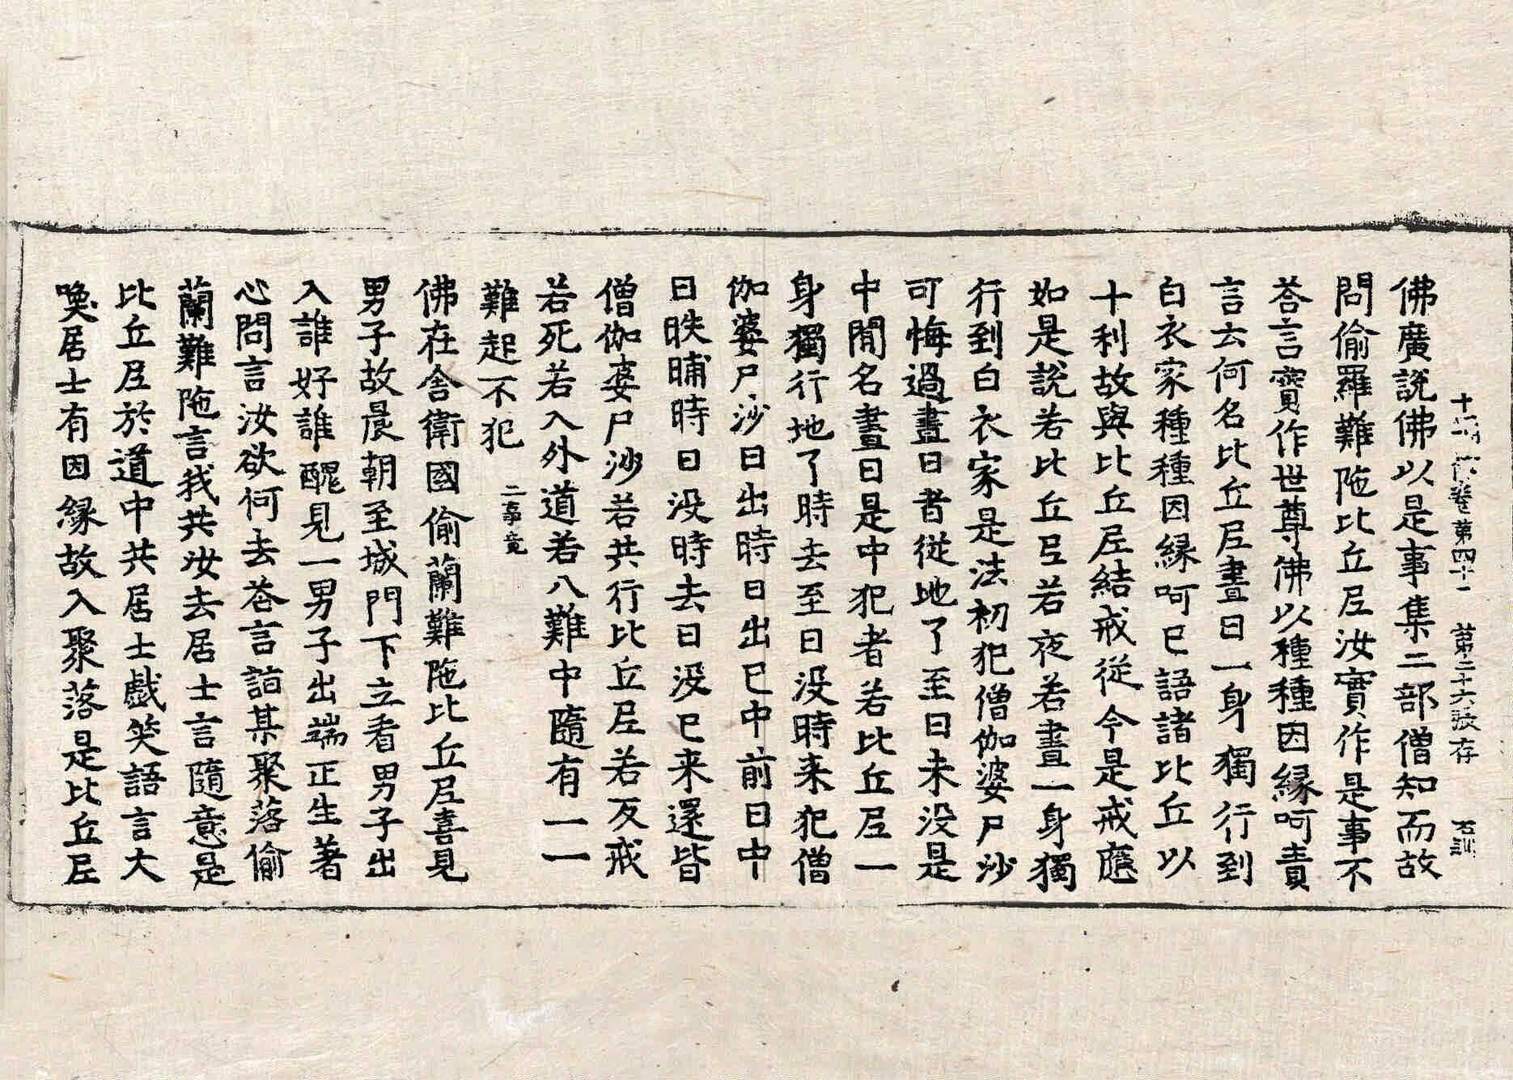 十誦律卷第四十一 第二十六張存 石訓
佛廣說佛以是事集二部僧知而故
問偷羅難陁比丘尼汝實作是事不
荅言實作世尊佛以種種因緣呵責
言云何名比丘尼晝日一身獨行到
白衣家種種因緣呵已語諸比丘以
十利故與比丘尼結戒從今是戒應
如是說若比丘尼若夜若晝一身獨
行到白衣家是法初犯僧伽婆尸沙
可悔過晝日者從地了至日未没是
中閒名晝日是中犯者若比丘尼一
身獨行地了時去至日没時来犯僧
伽婆尸沙日出時日出已中前日中
日昳晡時日没時去日没已来還皆
僧伽婆尸沙若共行比丘尼若反戒
若死若入外道若八難中隨有一一
難起不犯 二事竟
佛在舍衛國偷蘭難陁比丘尼喜見
男子故晨朝至城門下立看男子出
入誰好誰醜見一男子出端正生著
心問言汝欲何去荅言詣某聚落偷
蘭難陁言我共汝去居士言隨意是
比丘尼於道中共居士戲笑語言大
喚居士有因緣故入聚落是比丘尼